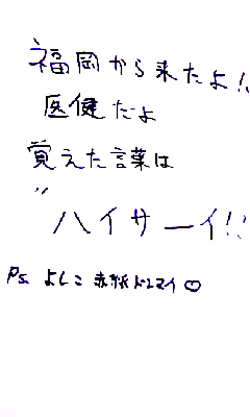 福岡から来たよ!!
医健だよ
覚えた言葉は
〃ハイサーイ!!
P.S. よしこ